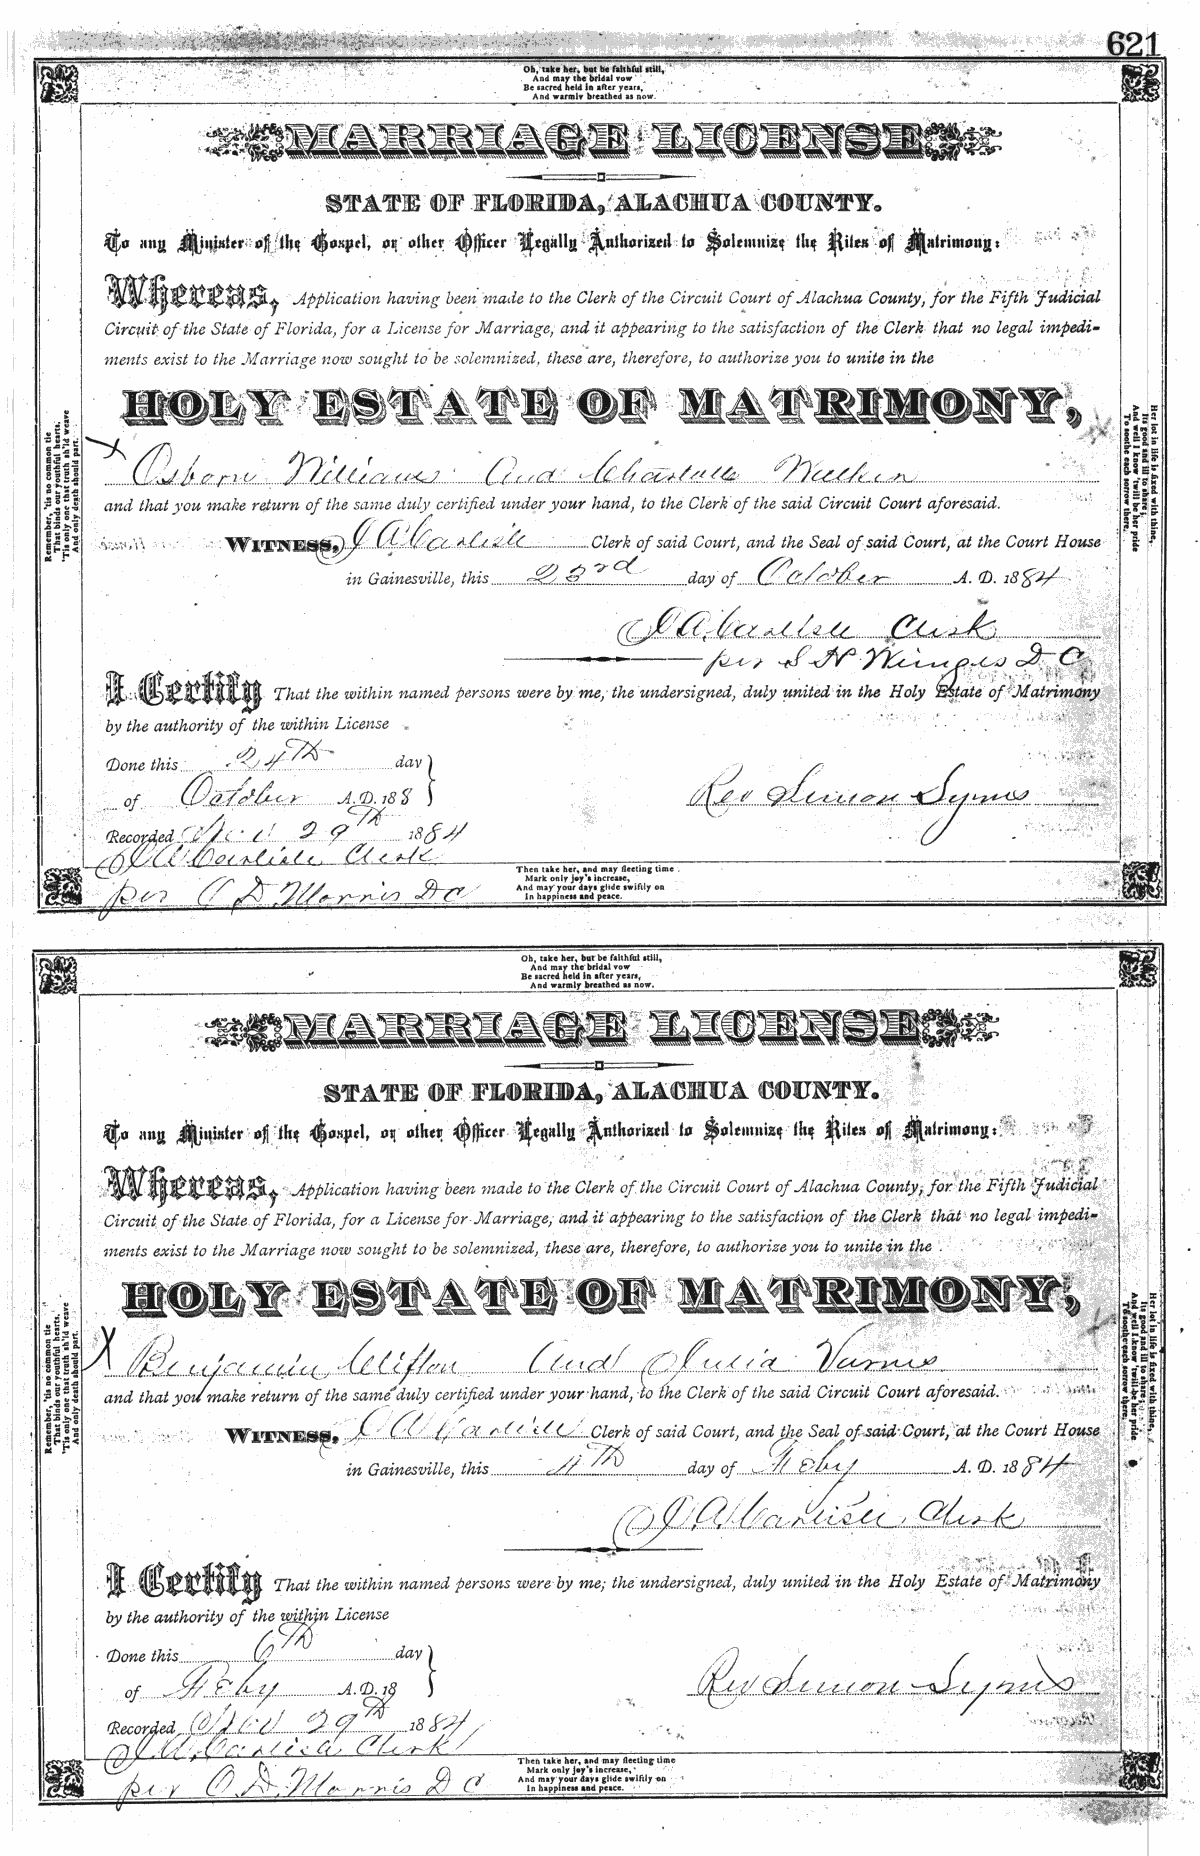 621
Oh, take her, but be faithful still,
And may the bridal vow
Be sacred held in after years,
And warmly breathed as now.
MARRIAGE LICENSE
STATE OF FLORIDA, ALACHUA COUNTY.
To any Minister of the Gospel, or other Officer Legally Authorized to Solemnize the Rites of Matrimony:
Whereas, Application having been made to the Clerk of the Circuit Court of Alachua County, for the Fifth Judicial
Circuit of the State of Florida, for a License for Marriage, and it appearing to the satisfaction of the Clerk that no legal impedi-
ments exist to the Marriage now sought to be solemnized, these are, therefore, to authorize you to unite in the
HOLY ESTATE OF MATRIMONY,
X Osborn Williams and
and that you make return of the same duly certified under your hand, to the Clerk of the said Circuit Court aforesaid.
WITNESS, J A Carlisle Clerk of said Court, and the Seal of said Court, at the Court House
in Gainesville, this 23rd day of October A. D. 1884
J. A. Carlisle Clerk
per S H Wienges D C
I Certify That the within named persons were by me, the undersigned, duly united in the Holy Estate of Matrimony
by the authority of the within License
Done this 24th day
of October A.D. 188
Rev Simon Syms
Recorded Nov 29th 1884
J A Carlisle Clerk
per C D. Morris D C
Then take her, and may fleeting time
Mark only joy's increase,
And may your days glide swiftly on
In happiness and peace.
Remember, 'tis no common tie
That binds our youthful hearts,
'Tis only one that truth sh'ld weave
And only death should part.
Her lot in life is fixed with thine,
Its good and ill to share;
And well I know 'twill be her pride
To soothe each sorrow there,
Oh, take her, but be faithful still,
And may the bridal vow
Be sacred held in after years,
And warmly breathed as now.
MARRIAGE LICENSE
STATE OF FLORIDA, ALACHUA COUNTY.
To any Minister of the Gospel, or other Officer Legally Authorized to Solemnize the Rites of Matrimony:
Whereas, Application having been made to the Clerk of the Circuit Court of Alachua County, for the Fifth Judicial
Circuit of the State of Florida, for a License for Marriage, and it appearing to the satisfaction of the Clerk that no legal impedi-
ments exist to the Marriage now sought to be solemnized, these are, therefore, to authorize you to unite in the
HOLY ESTATE OF MATRIMONY,
X Benjamin Clifton and Julia
and that you make return of the same duly certified under your hand, to the Clerk of the said Circuit Court aforesaid.
WITNESS, J A Carlisle Clerk of said Court, and the Seal of said Court, at the Court House
in Gainesville, this 4th day of Feby A. D. 1884
J. A. Carlisle, Clerk
I Certify That the within named persons were by me, the undersigned, duly united in the Holy Estate of Matrimony
by the authority of the within License
Done this 6th day
of Feby A.D. 18
Rev Simon Syms
Recorded Nov 29th 1884
J. A. Carlisle Clerk
per C. D. Morris D C
Then take her, and may fleeting time
Mark only joy's increase,
And may your days glide swiftly on
In happiness and peace.
Remember, 'tis no common tie
That binds our youthful hearts,
'Tis only one that truth sh'ld weave
And only death should part.
Her lot in life is fixed with thine,
Its good and ill to share;
And well I know 'twill be her pride
To soothe each sorrow there,